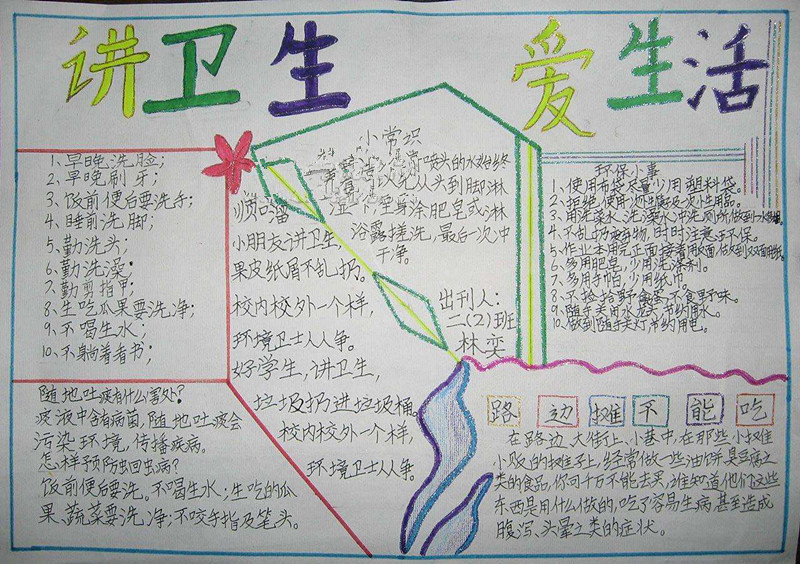 讲卫生 爱生活
1、早晚洗脸；
2、早晚刷牙；
3、饭前便后要洗手；
4、睡前洗脚；
5、勤洗头；
6、勤洗澡；
7、勤剪指甲；
8、生吃瓜果要洗净；
9、不喝生水；
10、不躺着看书；
随地吐痰有什么害处？
痰液中含有病菌，随地吐痰会
污染环境，传播疾病。
怎样预防蛔虫病？
饭前便后要洗。不喝生水；生吃的瓜
果、蔬菜要洗净；不咬手指及笔头。
小常识
喷头的水始终
从头到脚淋
全身涂肥皂或淋
浴露搓洗，最后一次冲
干净。
顺口溜
小朋友讲卫生，
果皮纸屑不乱扔。
校内校外一个样，
环境卫士人人争。
好学生，讲卫生，
垃圾扔进垃圾桶。
校内校外一个样，
环境卫士人人争。
出刊人：
二(2)班
林奕
环保小事
1、使用布袋，尽量少用塑料袋。
2、拒绝使用一次性用品。
3、用洗菜水、洗澡水冲洗厕所
4、不乱扔废弃物，时时注意环保。
5、作业本用完正面接着用反面
6、多用肥皂，少用洗涤剂。
7、多用手帕，少用纸巾。
8、不食野味。
9、随手关闭水龙头，节约用水。
10、做到随手关灯，节约用电。
路边摊不能吃
在路边、大街上、小巷中，在那些小摊
小贩的摊子上，经常做一些油饼臭豆腐之
类的食品，你可千万不能去买，谁知道他们这些
东西是用什么做的，吃了容易生病，甚至造成
腹泻、头晕之类的症状。